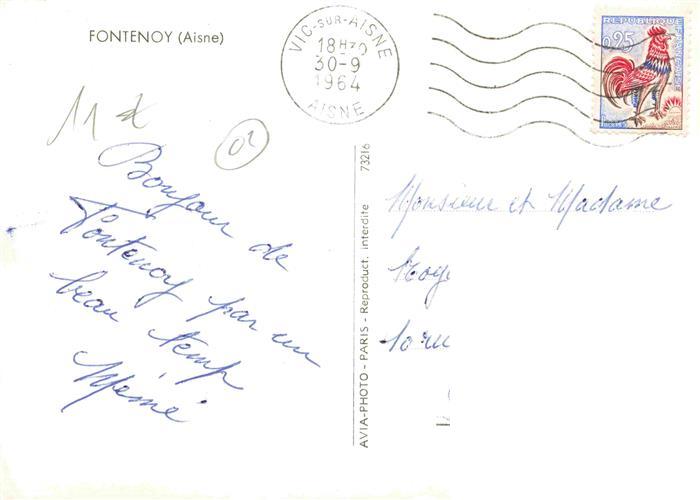 FONTENOY (Aisne)
VIC-SUR-AISNE
18H30
30-9
1964
AISNE
REPUBLIQUE
FRANÇAISE
0,25
11
02
Bonjour de
Fontenoy par un
beau temp
Mémé
AVIA-PHOTO - PARIS - Reproduct. interdite 73216
Monsieur et Madame